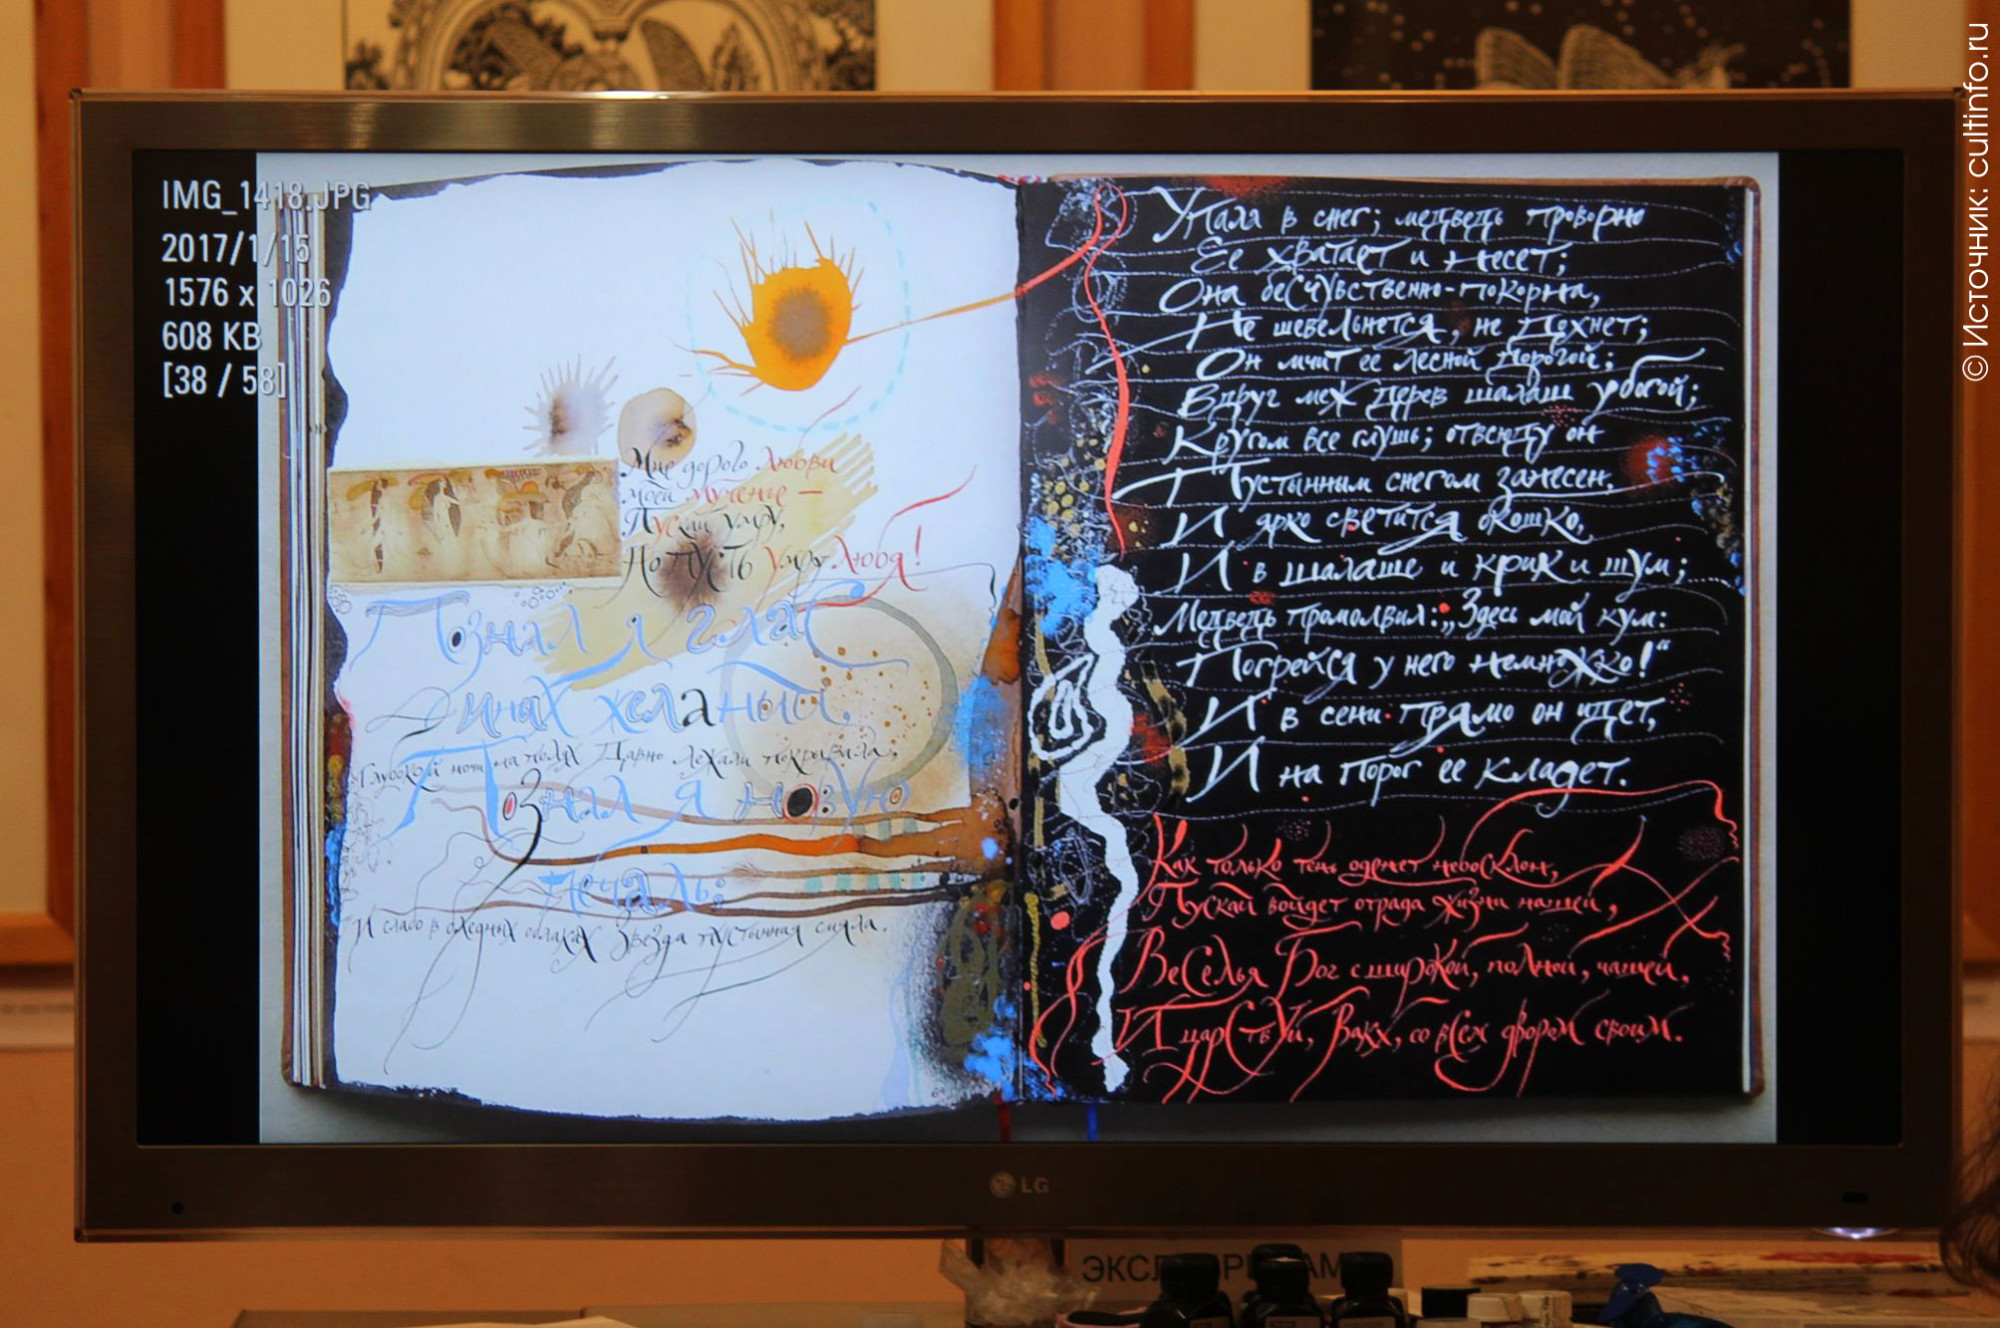 © Источник: cultinfo.ru
IMG_1418.JPG
2017/1/15
1576 x 1026
608 KB
[38 / 58]
Мне дорого любви
моей мученье —
Пускай умру,
Но пусть умру любя!
Познал я глас
иных желаний,
Глубокой ночи на полях Давно лежали покрывала,
Познал я новую
печаль;
И слабо в бледных облаках Звезда пустынная сияла.
Упала в снег; медведь проворно
Ее хватает и несет;
Она бесчувственно-покорна,
Не шевельнется, не дохнет;
Он мчит ее лесной дорогой;
Вдруг меж дерев шалаш убогой;
Кругом все глушь; отвсюду он
Пустынным снегом занесен,
И ярко светится окошко,
И в шалаше и крик и шум;
Медведь промолвил: „Здесь мой кум:
Погрейся у него немножко!“
И в сени прямо он идет,
И на порог ее кладет.
Как только тень оденет небосклон,
Пускай войдет отрада жизни нашей,
Веселья Бог с широкой, полной, чашей,
И царствуй, Вакх, со всем двором своим.
LG